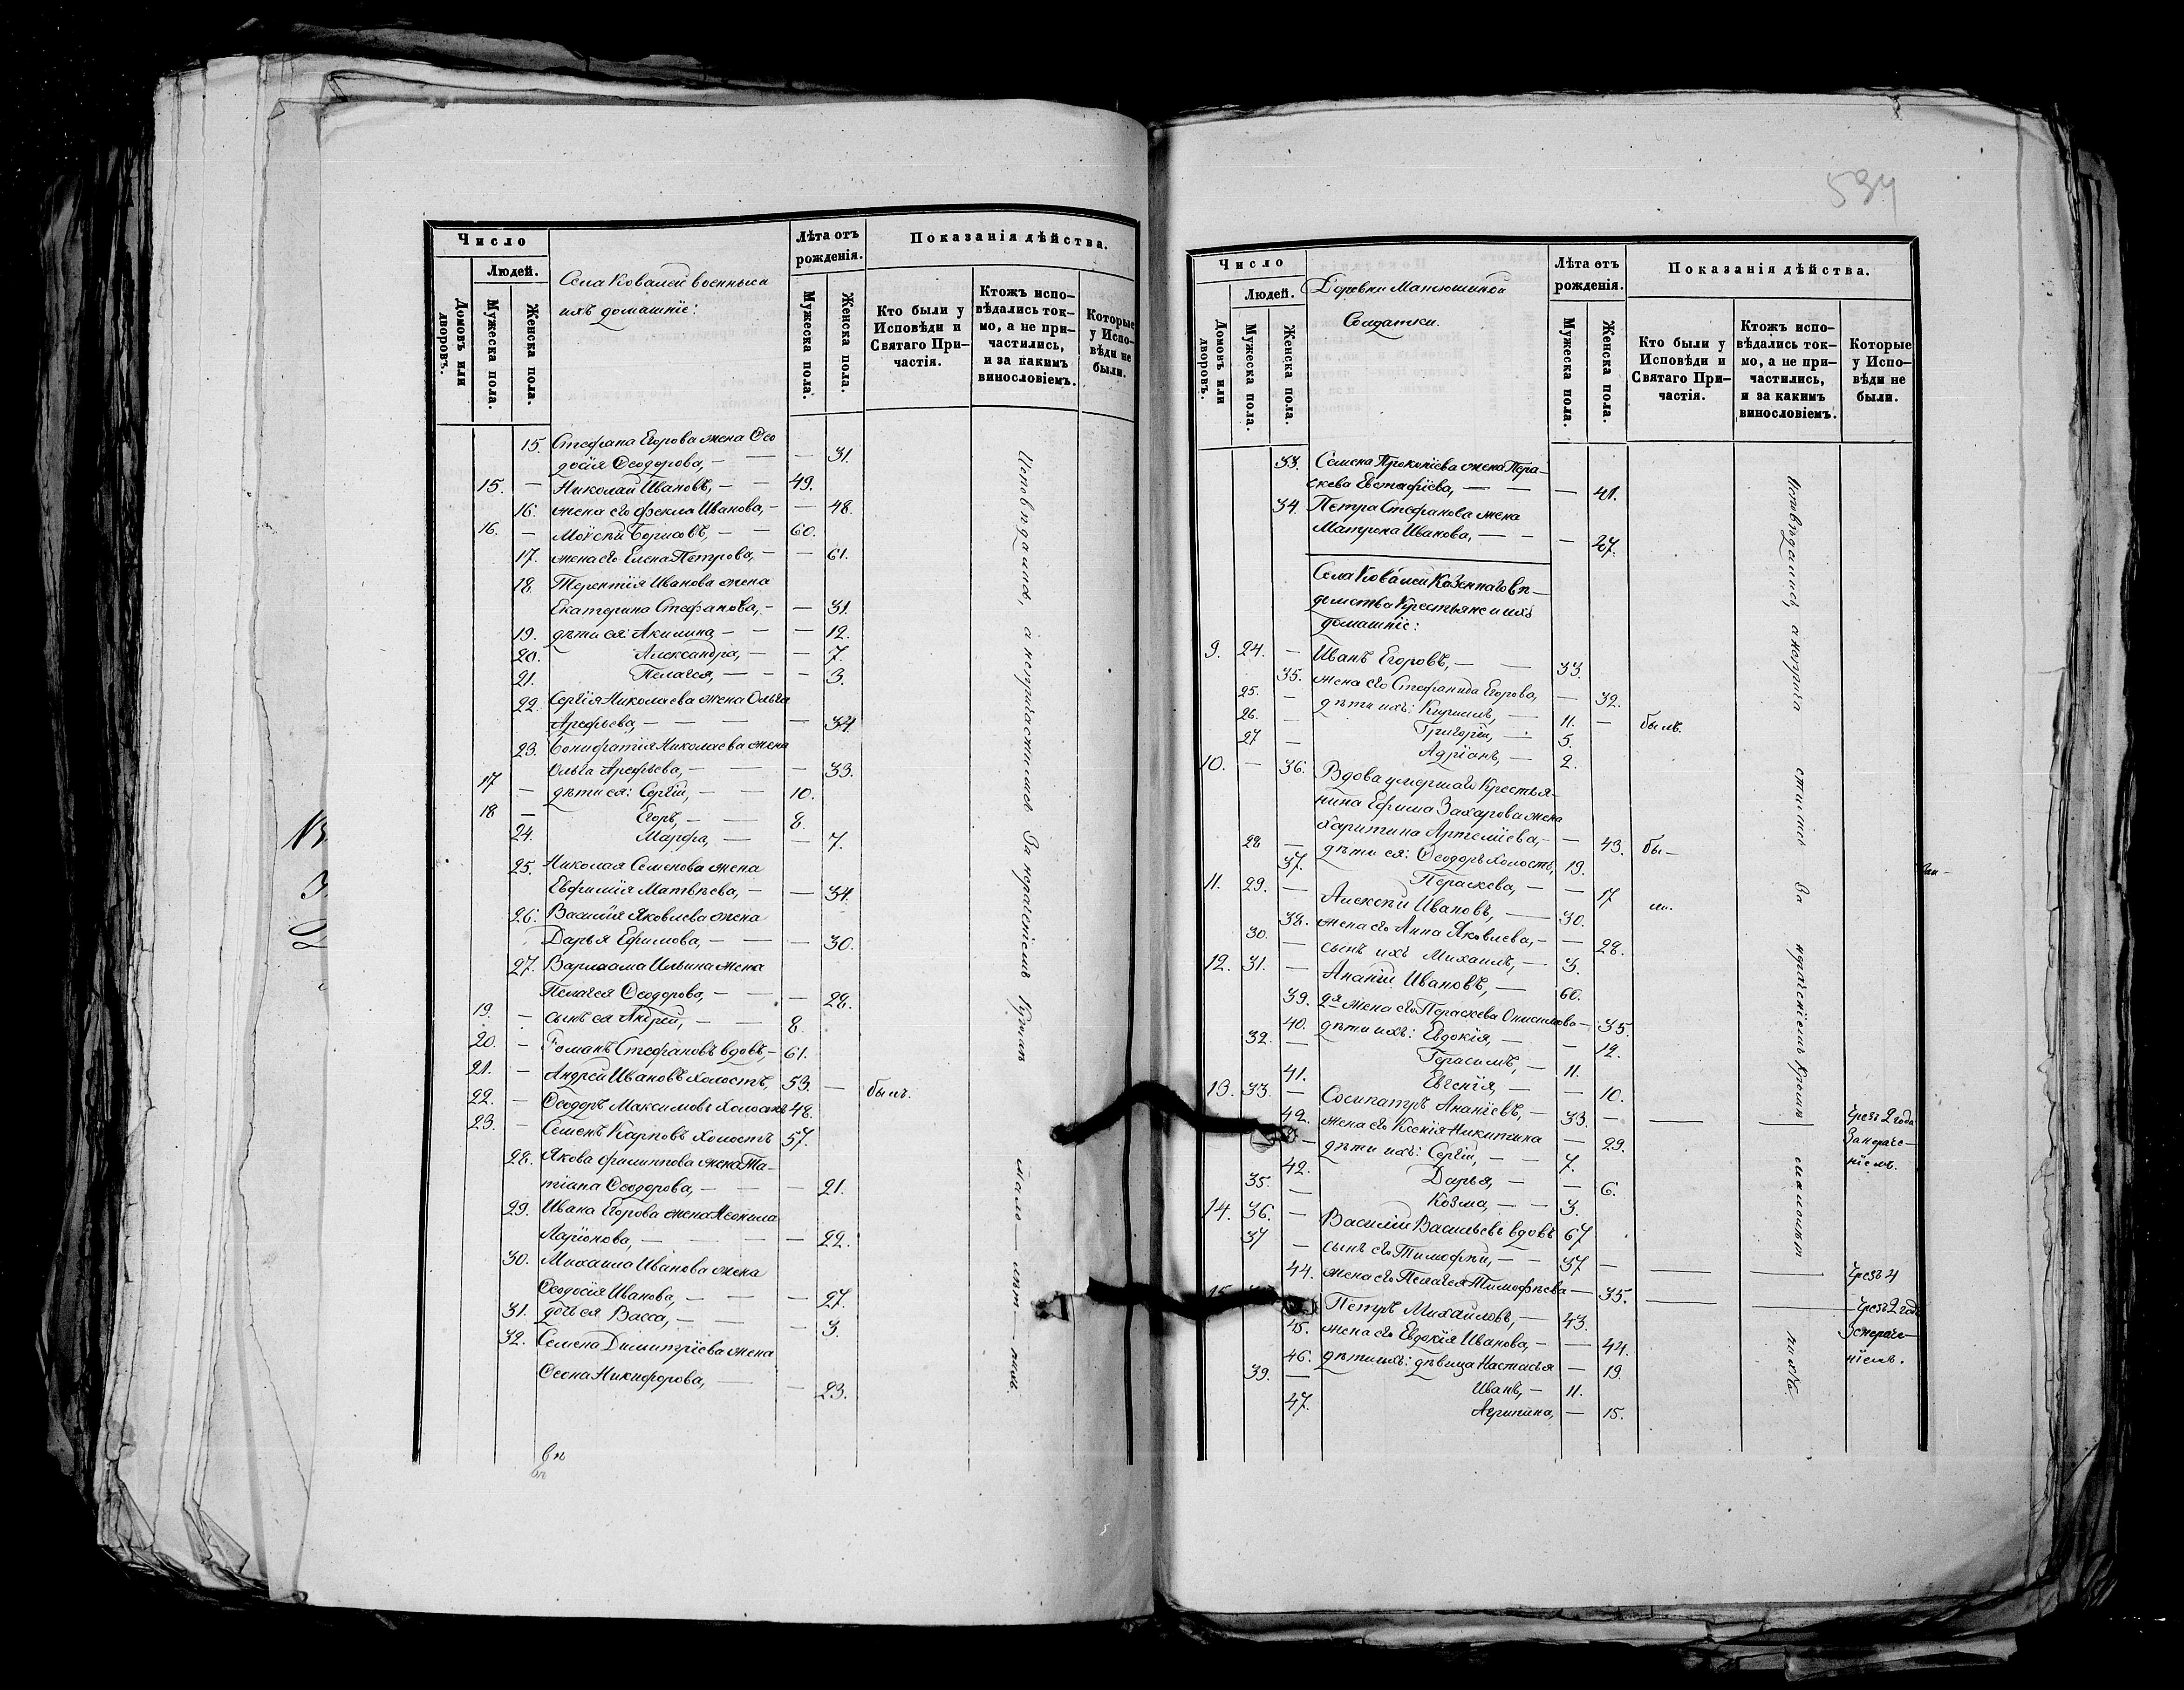 Число
Людей.
Домовъ или дворовъ.
Мужеска пола.
Женска пола.
Села Ковалей военныя и
ихъ домашніе:
Лѣта отъ рожденія.
Мужеска пола.
Женска пола.
Показанія дѣйства.
Кто были у Исповѣди и Святаго При-
частія.
Ктожъ испо-
вѣдались ток-
мо, а не при-
частились,
и за какимъ
винословіемъ.
Которые
у Испо-
вѣди не
были.
15. Стефана Егорова жена Ѳео
досія Ѳеодорова, — — — 31.
15. — Николай Ивановъ, — — 49.
16. жена его Фекла Иванова, — — 48.
16. — Моѵсей Борисовъ, — — 60.
17. жена его Елена Петрова, — — 61.
18. Терентія Иванова жена
Екатерина Стефанова, — — 31.
19. дѣти ея: Акилина, — — — 12.
20. Александра, — — 7.
21. Пелагея, — — — 3.
22. Сергія Николаева жена Ольга
Арефьева, — — — — 34.
23. Вонифатія Николаева жена
Ольга Арефьева, — — — 33.
17 — дѣти ея: Сергій, — — 10.
18 — Егоръ, — — 8.
24. Марфа, — — 7.
25. Николая Семенова жена
Евфимія Матвѣева, — — 34.
26. Василія Яковлева жена
Дарья Ефимова, — — — 30.
27. Варлаама Ильина жена
Пелагея Ѳеодорова, — — — 28.
19. — сынъ ея Андрей, — — 8.
20. — Романъ Стефановъ вдовъ, — 61.
21. — Андрей Ивановъ холостъ, 53. — былъ.
22. — Ѳеодоръ Максимовъ холостъ 48.
23. — Семенъ Карповъ холостъ 57.
28. Якова Филиппова жена Та-
тіана Ѳеодорова, — — — 21.
29. Ивана Егорова жена Неонила
Ларіонова, — — — — 22.
30. Михаила Иванова жена
Ѳеодосія Иванова, — — — 27.
31. дочь ея Васса, — — — 3.
32. Семена Димитріева жена
Ѳеона Никифорова, — — 23.
Исповѣдались, а непричастились За нераченіемъ Кромѣ мало — лѣт — нихъ.
594
Число
Людей.
Домовъ или дворовъ.
Мужеска пола.
Женска пола.
Деревни Матюшиной
Солдатки.
Лѣта отъ рожденія.
Мужеска пола.
Женска пола.
Показанія дѣйства.
Кто были у
Исповѣди и
Святаго При-
частія.
Ктожъ испо-
вѣдались ток-
мо, а не при-
частились,
и за какимъ
винословіемъ.
Которые
у Испо-
вѣди не
были.
33. Семена Прокопіева жена Пара-
скева Евстафіева, — — — 41.
34. Петра Стефанова жена
Матрона Иванова, — — — 27.
Села Ковалей Казеннаго вѣ-
домства Крестьяне и ихъ
домашніе:
9. 24. — Иванъ Егоровъ, — — 33.
35. жена его Стефанида Егорова, — 32.
25. — дѣти ихъ: Кириллъ, — 11. — былъ.
26. — Григорій, — 5.
27 — Адріанъ, — 2.
10. — 36. Вдова умершаго Крестья-
нина Ефима Захарова жена
Харитина Артеміева, — — 43. бы—
28 — дѣти ея: Ѳеодоръ холостъ, 19.
37. Параскева, — — 17 ли.
11. 29. — Алексѣй Ивановъ, — 30.
38. жена его Анна Яковлева, — — 28.
30. — сынъ ихъ Михаилъ, — 3.
12. 31. — Ананій Ивановъ, — 60.
39. 2я жена его Параскева Онисимова — 35.
40. дѣти ихъ: Евдокія, — — 12.
32. — Герасимъ, — 11.
41. Евгенія, — 10.
13. 33. — Сосипатръ Ананіевъ, — 33. — — — Чрезъ 2 года
42. жена его Ксенія Никитина — 29. За нераче—
— дѣти ихъ: Сергій, — — 7. ніемъ.
42. Дарья, — — 6.
35. — Козма, — — 3.
14. 36. — Василій Васильевъ вдовъ 67
37 — сынъ его Тимофей, — — 37 — — — Чрезъ 4
44. жена его Пелагея Тимофѣева — 35. — — Чрезъ 2 года
15. Петръ Михайловъ, — 43. За нераче—
45. жена его Евдокія Иванова, — — 44. ніемъ.
46. дѣти ихъ: дѣвица Настасья — 19.
39. — Иванъ, — 11.
47. Агрипина, — 15.
Исповѣдались, а неприча стились За нераченіемъ Кромѣ малолѣт нихъ.